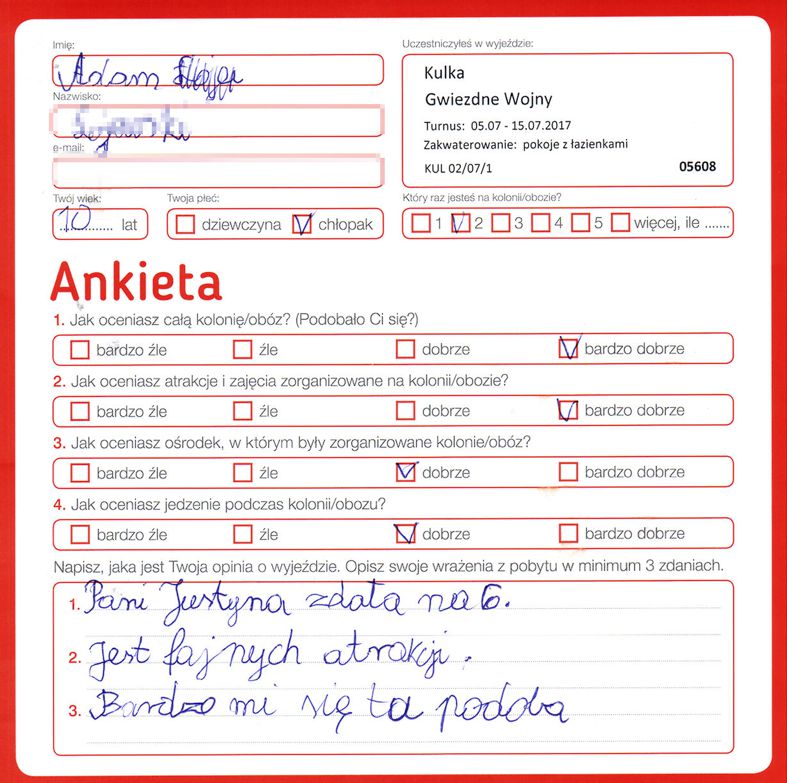 Imię:
Adam
Nazwisko:
e-mail:
Twój wiek:
10 lat
Twoja płeć:
dziewczyna chłopak
Uczestniczyłeś w wyjeździe:
Kulka
Gwiezdne Wojny
Turnus: 05.07 - 15.07.2017
Zakwaterowanie: pokoje z łazienkami
KUL 02/07/1 05608
Który raz jesteś na kolonii/obozie?
1 2 3 4 5 więcej, ile .......
Ankieta
1. Jak oceniasz całą kolonię/obóz? (Podobało Ci się?)
bardzo źle źle dobrze bardzo dobrze
2. Jak oceniasz atrakcje i zajęcia zorganizowane na kolonii/obozie?
bardzo źle źle dobrze bardzo dobrze
3. Jak oceniasz ośrodek, w którym były zorganizowane kolonie/obóz?
bardzo źle źle dobrze bardzo dobrze
4. Jak oceniasz jedzenie podczas kolonii/obozu?
bardzo źle źle dobrze bardzo dobrze
Napisz, jaka jest Twoja opinia o wyjeździe. Opisz swoje wrażenia z pobytu w minimum 3 zdaniach.
1. Pani Justyna zdała na 6.
2. Jest fajnych atrakcji.
3. Bardzo mi się ta podoba